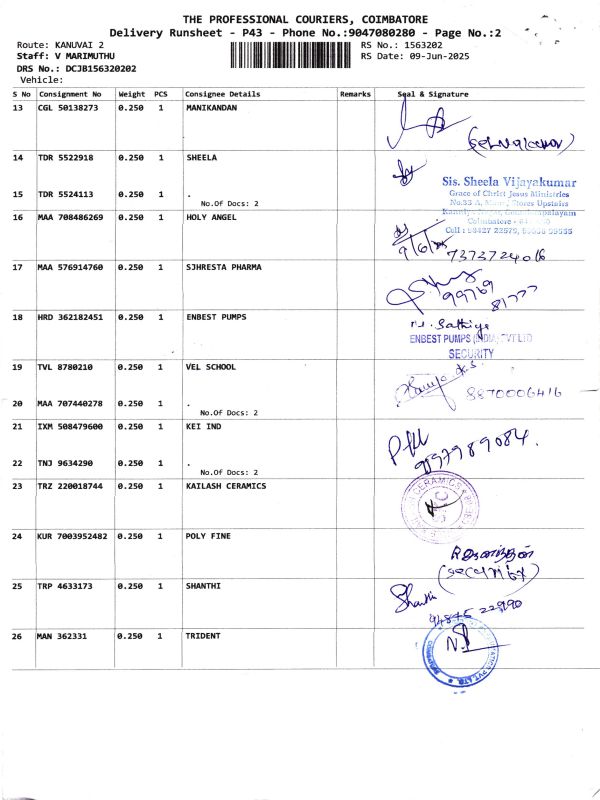 THE PROFESSIONAL COURIERS, COIMBATORE
Delivery Runsheet - P43 - Phone No.:9047080280 - Page No.:2
Route: KANUVAI 2
RS No.: 1563202
Staff: V MARIMUTHU
RS Date: 09-Jun-2025
DRS No.: DCJB156320202
Vehicle:
S No Consignment No Weight PCS Consignee Details Remarks Seal & Signature
13 CGL 50138273 0.250 1 MANIKANDAN
14 TDR 5522918 0.250 1 SHEELA
Sis. Sheela Vijayakumar
Grace of Christ Jesus Ministries
15 TDR 5524113 0.250 1 .
No.Of Docs: 2
No.33 A, Stores Upstairs
16 MAA 708486269 0.250 1 HOLY ANGEL
Coimbatore
9/6/25
7373724016
17 MAA 576914760 0.250 1 SJHRESTA PHARMA
99769
81777
18 HRD 362182451 0.250 1 ENBEST PUMPS
Sathiya
ENBEST PUMPS (INDIA) PVT LTD
SECURITY
19 TVL 8780210 0.250 1 VEL SCHOOL
8870006416
20 MAA 707440278 0.250 1 .
No.Of Docs: 2
21 IXM 508479600 0.250 1 KEI IND
22 TNJ 9634290 0.250 1 .
No.Of Docs: 2
23 TRZ 220018744 0.250 1 KAILASH CERAMICS
CERAMICS
24 KUR 7003952482 0.250 1 POLY FINE
25 TRP 4633173 0.250 1 SHANTHI
Shanthi
26 MAN 362331 0.250 1 TRIDENT